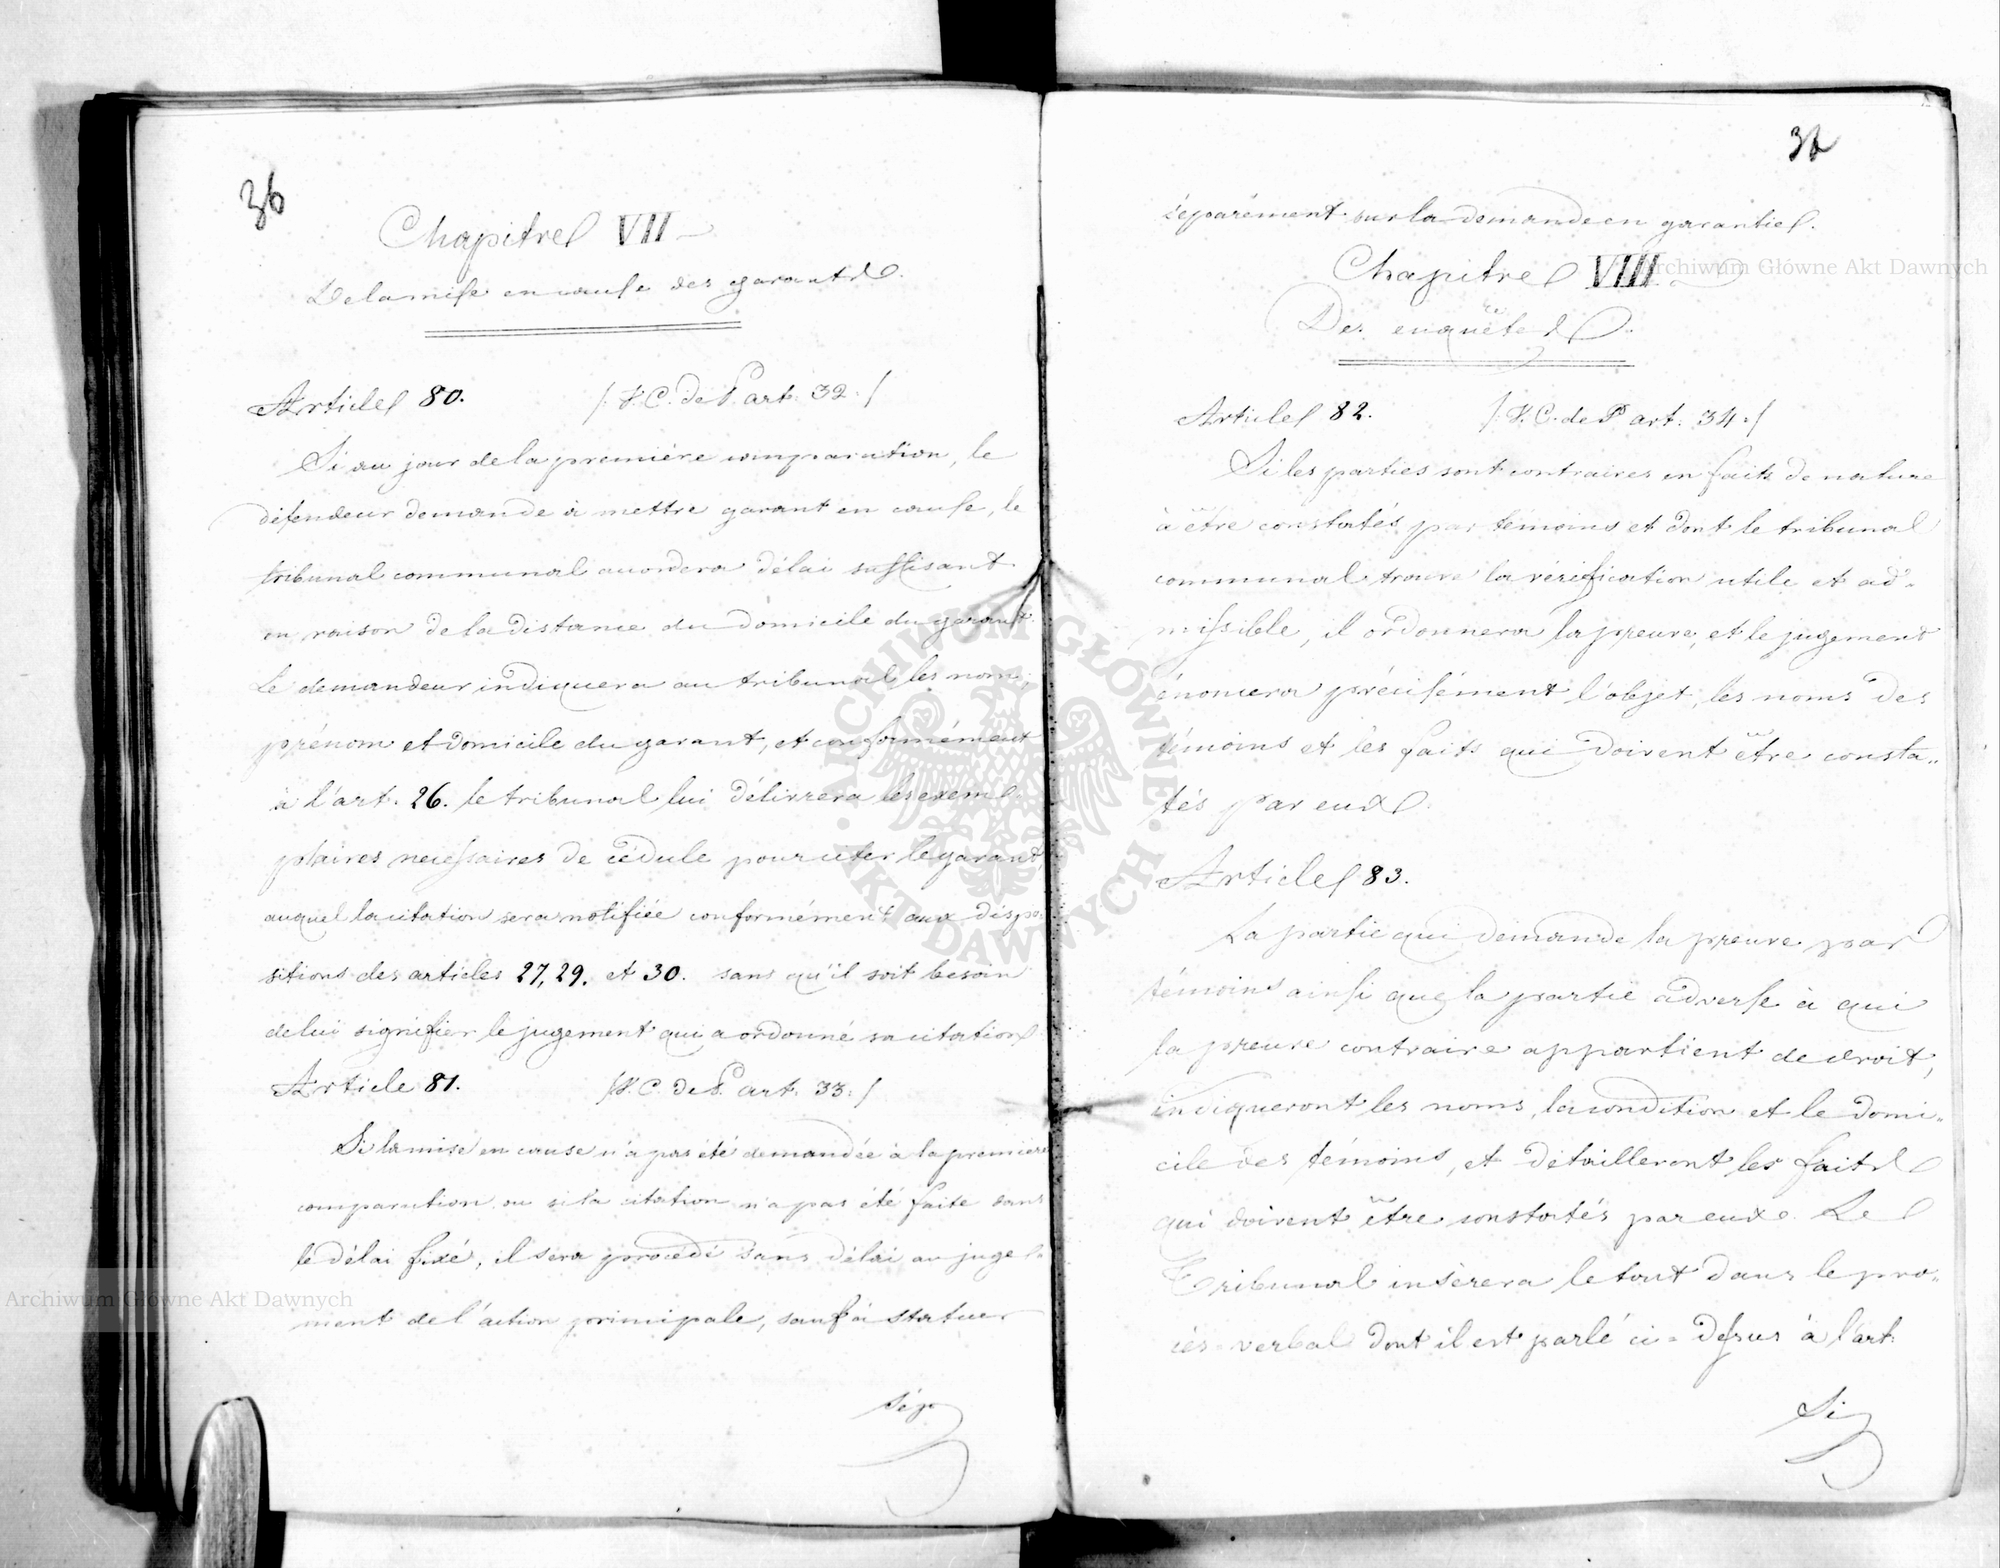 36
Chapitre VII
De la mise en cause des garants.
Article 80. /: V. C. de P. art. 32 :/
Si au jour de la première comparution, le
défendeur demande à mettre garant en cause, le
tribunal communal accordera délai suffisant
en raison de la distance du domicile du garant.
Le demandeur indiquera au tribunal les nom,
prénom et domicile du garant, et conformément
à l'art. 26. le tribunal lui délivrera les exem-
plaires necessaires de cédule pour citer le garant,
auquel la citation sera notifiée conformément aux dispo-
sitions des articles 27, 29. et 30. sans qu'il soit besoin
de lui signifier le jugement qui a ordonné sa citation
Article 81. /: V. C. de P. art. 33. :/
Si la mise en cause n'a pas été demandée à la première
comparution ou si la citation n'a pas été faite dans
le délai fixé, il sera procédé sans délai au juge-
ment de l'action principale, sauf à statuer
sép
séparément sur la demande en garantie.
Chapitre VIII
Des enquêtes.
Article 82. /: V. C. de P. art. 34. :/
Si les parties sont contraires en faits de nature
à être constatés par témoins et dont le tribunal
communal trouve la vérification utile et ad-
missible, il ordonnera la preuve, et le jugement
énoncera précisément l'objet, les noms des
témoins et les faits qui doivent être consta-
tés par eux.
Article 83.
La partie qui demande la preuve par
témoins ainsi que la partie adverse à qui
la preuve contraire appartient de droit,
indiqueront les noms, la condition et le domi-
cile des témoins, et détailleront les faits
qui doivent être constatés par eux. Le
Tribunal insèrera le tout dans le pro-
cès-verbal dont il est parlé ci-dessus à l'art.
Si
ARCHIWUM GŁÓWNE AKT DAWNYCH
Archiwum Główne Akt Dawnych
Archiwum Główne Akt Dawnych